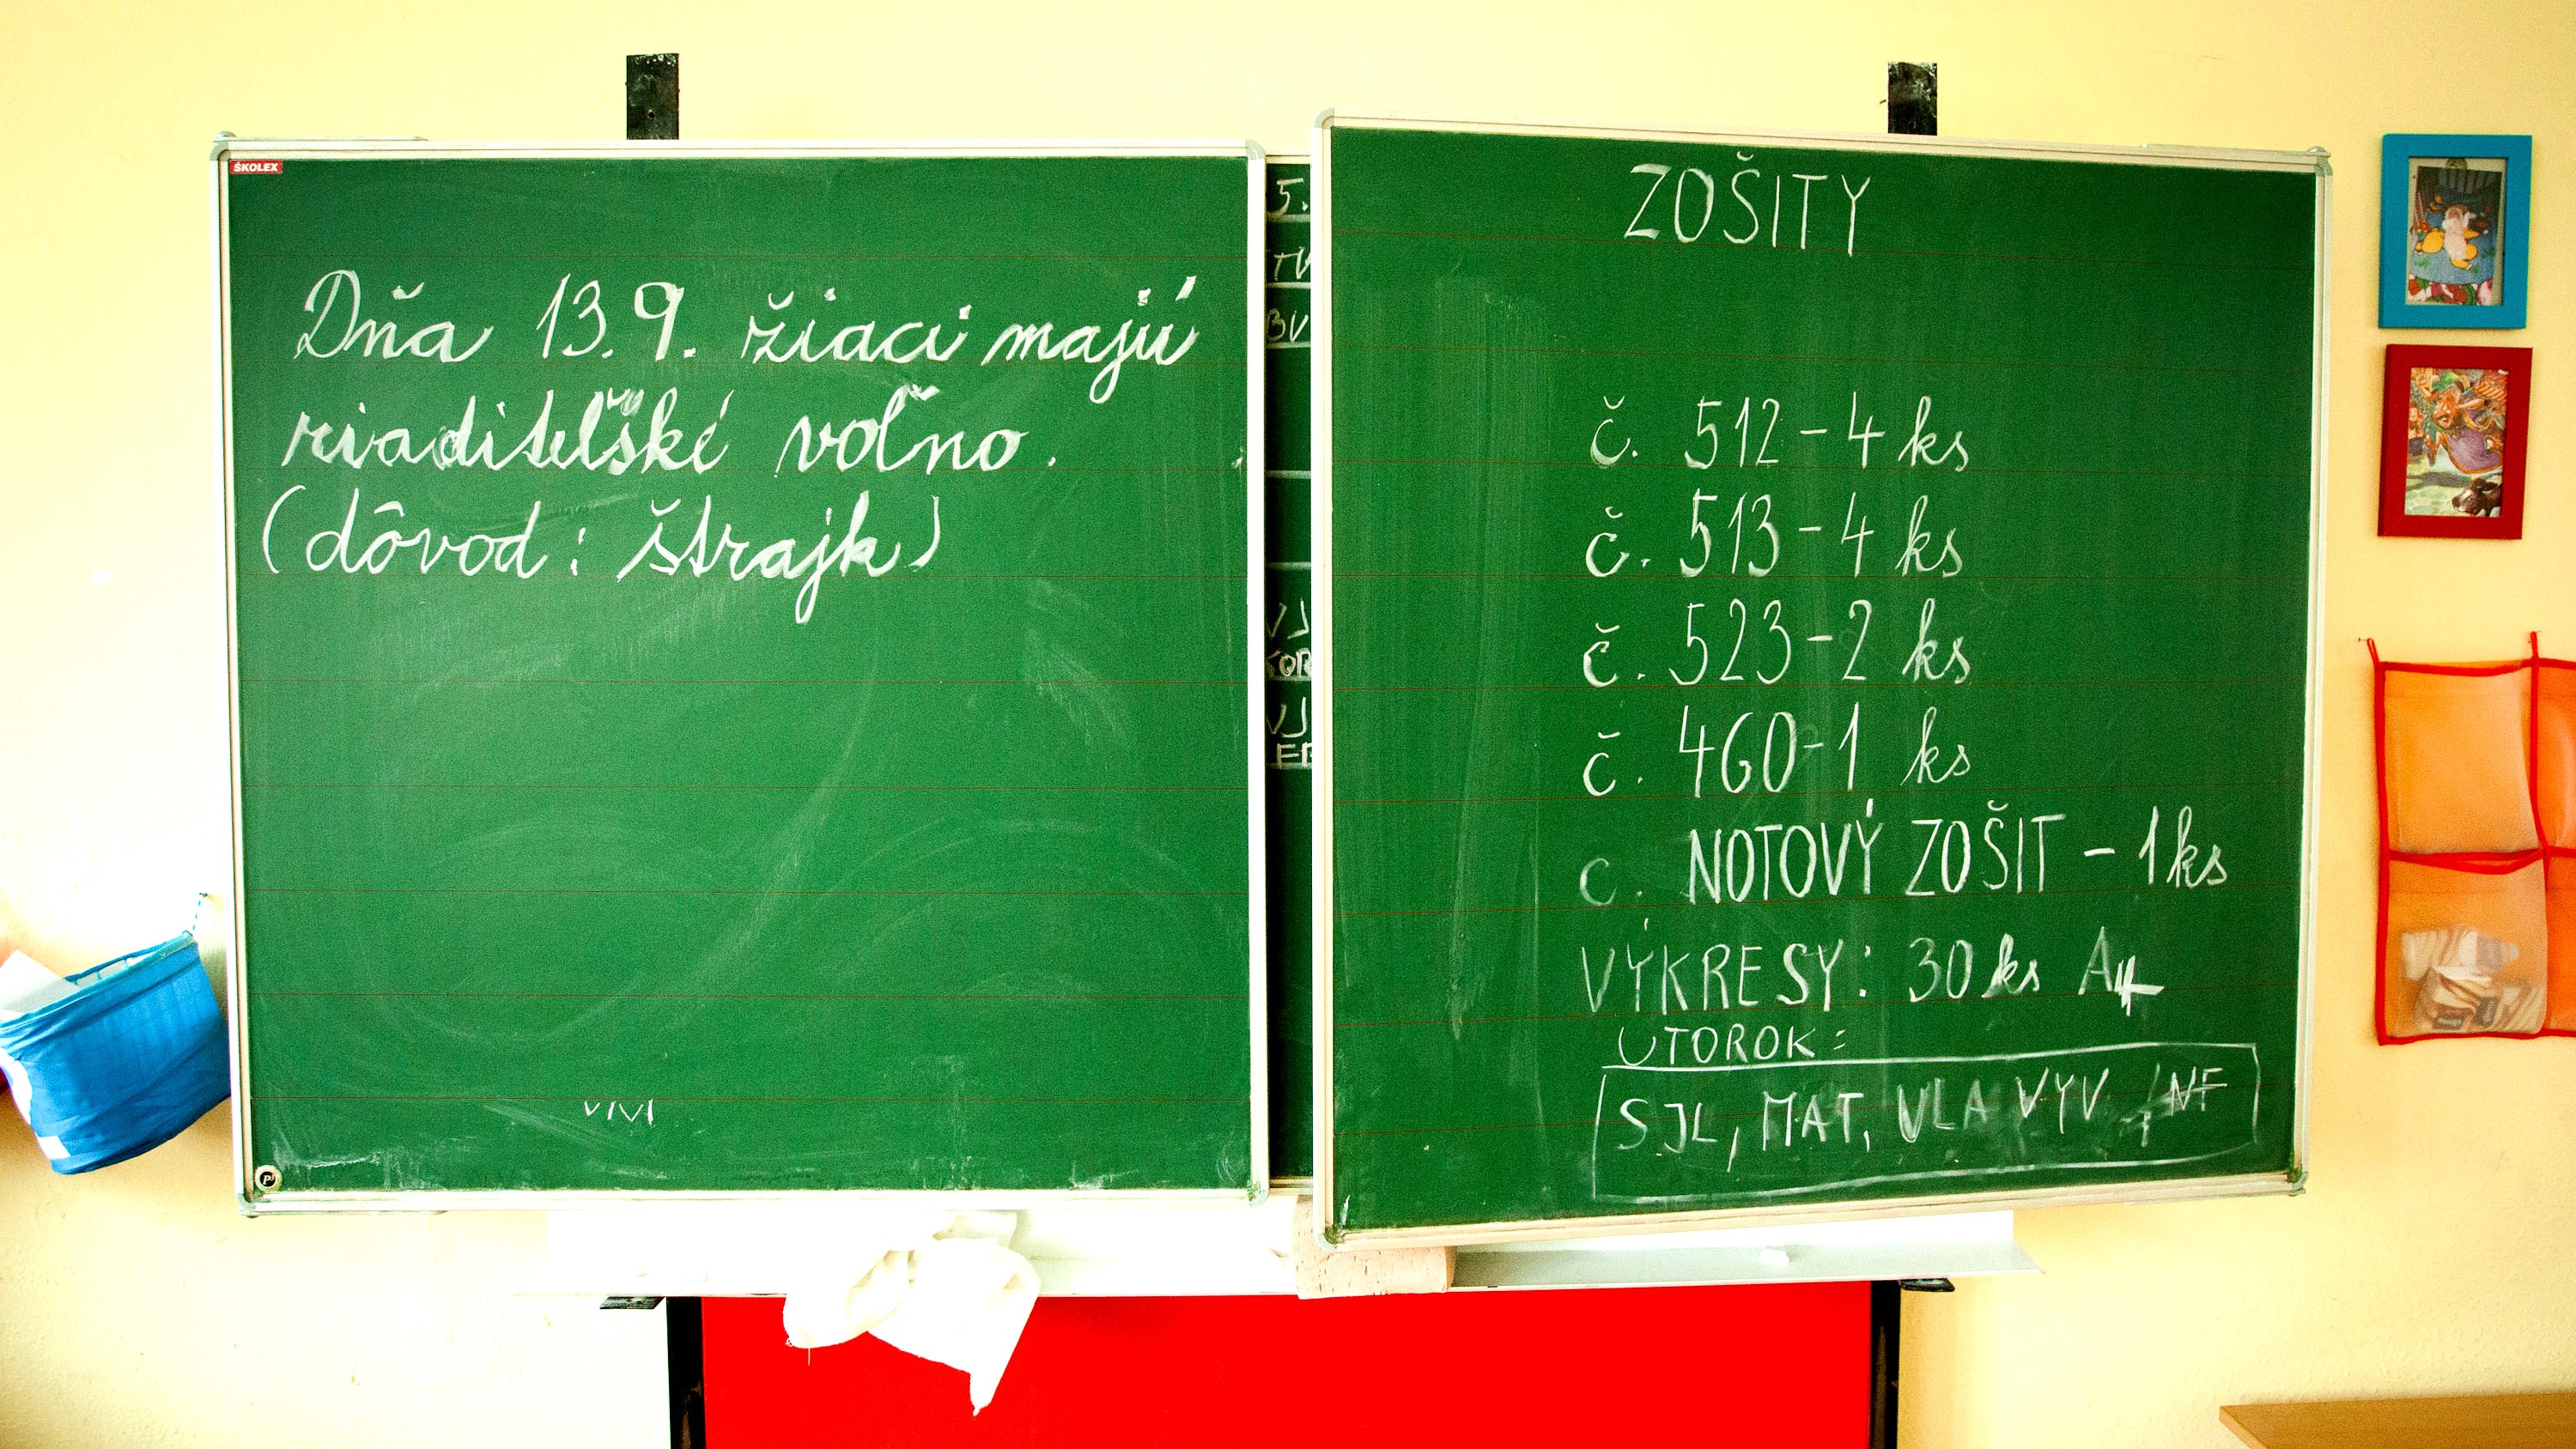 ŠKOLEX
Dňa 13.9. žiaci majú
riaditeľské voľno.
(dôvod: štrajk)
VIVI
5.
TV
BV
VJ
VJ
ZOŠITY
č. 512 - 4 ks
č. 513 - 4 ks
č. 523 - 2 ks
č. 460 - 1 ks
c. NOTOVÝ ZOŠIT - 1 ks
VÝKRESY: 30 ks A4
UTOROK:
SJL, MAT, VLA VYV